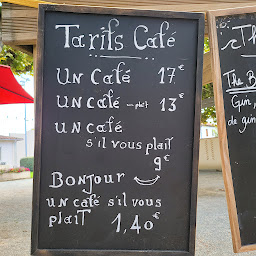 Tarifs Café
UN Café 17€
UN Café - plait 13€
UN Café
s'il vous plaît
9€
Bonjour
UN Café s'il vous
plaît 1,40€
The B
Gin,
de gin